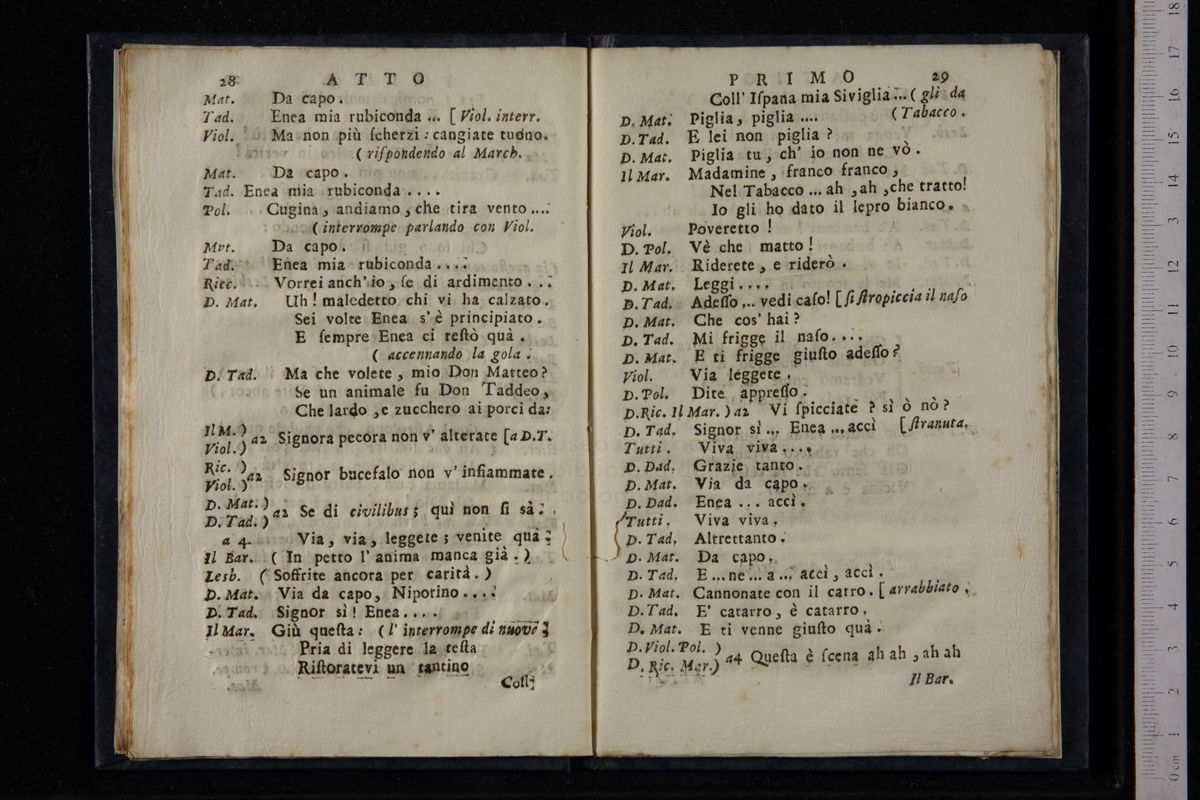 28 ATTO
Mat. Da capo.
Tad. Enea mia rubiconda ... [ Viol. interr.
Viol. Ma non più ſcherzi: cangiate tuono.
( riſpondendo al March.
Mat. Da capo.
Tad. Enea mia rubiconda ....
Pol. Cugina, andiamo, che tira vento ....
( interrompe parlando con Viol.
Mvt. Da capo.
Tad. Enea mia rubiconda ....
Ricc. Vorrei anch' io, ſe di ardimento ...
D. Mat. Uh! maledetto chi vi ha calzato.
Sei volte Enea s' è principiato.
E ſempre Enea ci reſtò quà.
( accennando la gola.
D. Tad. Ma che volete, mio Don Matteo?
Se un animale fu Don Taddeo,
Che lardo, e zucchero ai porci da:
Il M. )
Viol. ) a2 Signora pecora non v' alterate [ a D.T.
Ric. )
Viol. ) a2 Signor bucefalo non v' infiammate.
D. Mat. )
D. Tad. ) a2 Se di civilibus; quì non ſi sà.
a 4. Via, via, leggete; venite quà.
Il Bar. ( In petto l' anima manca già. )
Lesb. ( Soffrite ancora per carità. )
D. Mat. Via da capo, Nipotino ....
D. Tad. Signor sì! Enea ....
Il Mar. Giù queſta: ( l' interrompe di nuovo
Pria di leggere la teſta
Riſtoratevi un tantino
Coll'
PRIMO 29
Coll' Iſpana mia Siviglia ... ( gli da
D. Mat. Piglia, piglia .... ( Tabacco.
D. Tad. E lei non piglia?
D. Mat. Piglia tu, ch' io non ne vò.
Il Mar. Madamine, franco franco,
Nel Tabacco ... ah, ah, che tratto!
Io gli ho dato il lepro bianco.
Viol. Poveretto!
D. Pol. Vè che matto!
Il Mar. Riderete, e riderò.
D. Mat. Leggi ....
D. Tad. Adeſſo ... vedi caſo! [ ſi ſtropiccia il naſo
D. Mat. Che cos' hai?
D. Tad. Mi frigge il naſo ....
D. Mat. E ti frigge giuſto adeſſo?
Viol. Via leggete.
D. Pol. Dite appreſſo.
D. Ric. Il Mar. ) a2 Vi ſpicciate? sì ò nò?
D. Tad. Signor sì ... Enea ... accì [ ſtranuta.
Tutti. Viva viva ....
D. Dad. Grazie tanto.
D. Mat. Via da capo.
D. Dad. Enea ... accì.
Tutti. Viva viva.
D. Tad. Altrettanto.
D. Mat. Da capo.
D. Tad. E ... ne ... a ... accì, accì.
D. Mat. Cannonate con il carro. [ arrabbiato.
D. Tad. E' catarro, è catarro.
D. Mat. E ti venne giuſto quà.
D. Viol. Pol. )
D. Ric. Mar. ) a4 Queſta è ſcena ah ah, ah ah
Il Bar.
0 cm 1 2 3 4 5 6 7 8 9 10 11 12 13 14 15 16 17 18